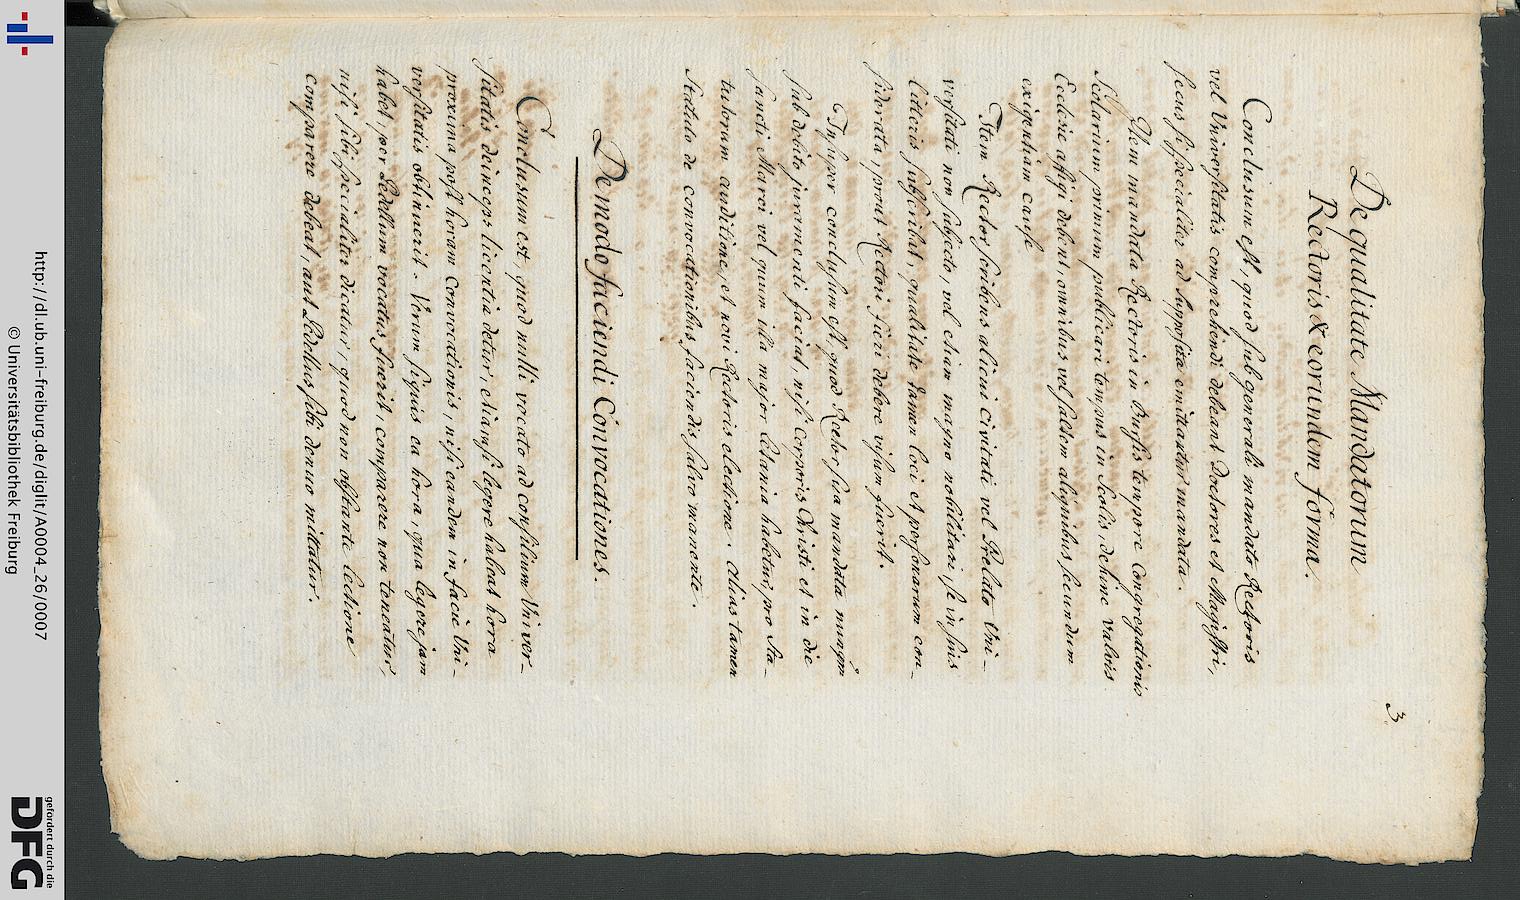 3
De qualitate Mandatorum
Rectoris & eorundem forma.
Conclusum est, quod sub generali mandato Rectoris
vel Universitatis comprehendi debeant Doctores et Magistri,
secus si specialiter ad supposita emittantur mandata.
Item mandata Rectoris in Bursis tempore Congregationis
Scolarium primum publicari, tempus in Scolis, dehinc valvis
Ecclesie affigi debent, omnibus vel saltem aliquibus, secundum
exigentiam causæ
Item Rector scribens alicui civitati vel Prelato Uni-
versitati non subjecto, vel etiam magno nobilitari, se in suis
litteris subscribat, qualitate tamen loci et personarum con-
siderata, prout Rectori fieri debere visum fuerit.
Insuper conclusum est, quod Rector sua mandata nunqm
sub debito juramenti faciat, nisi Corporis Christi et in die
Sancti Marci vel quum illa major letania habetur, pro sta-
tutorum auditione, et novi Rectoris electione. Alias tamen
Statuto de convocationibus faciendis salvo manente.
De modo faciendi Convocationes.
Conclusum est, quod nulli vocato ad consilium Univer-
sitatis deinceps licentia detur, etiamsi legere habeat hora
proxima post horam Convocationis, nisi eandem in facie Uni-
versitatis obtinuerit. Verum siquis ea hora, qua legere jam
habet, per Bedellum vocatus fuerit, comparere non teneatur,
nisi sibi specialiter dicatur, quod non obstante lectione
comparere debeat, aut Bedellus sibi denuo mittatur.
http://dl.ub.uni-freiburg.de/diglit/A0004_26/0007
© Universitätsbibliothek Freiburg
gefördert durch die
DFG